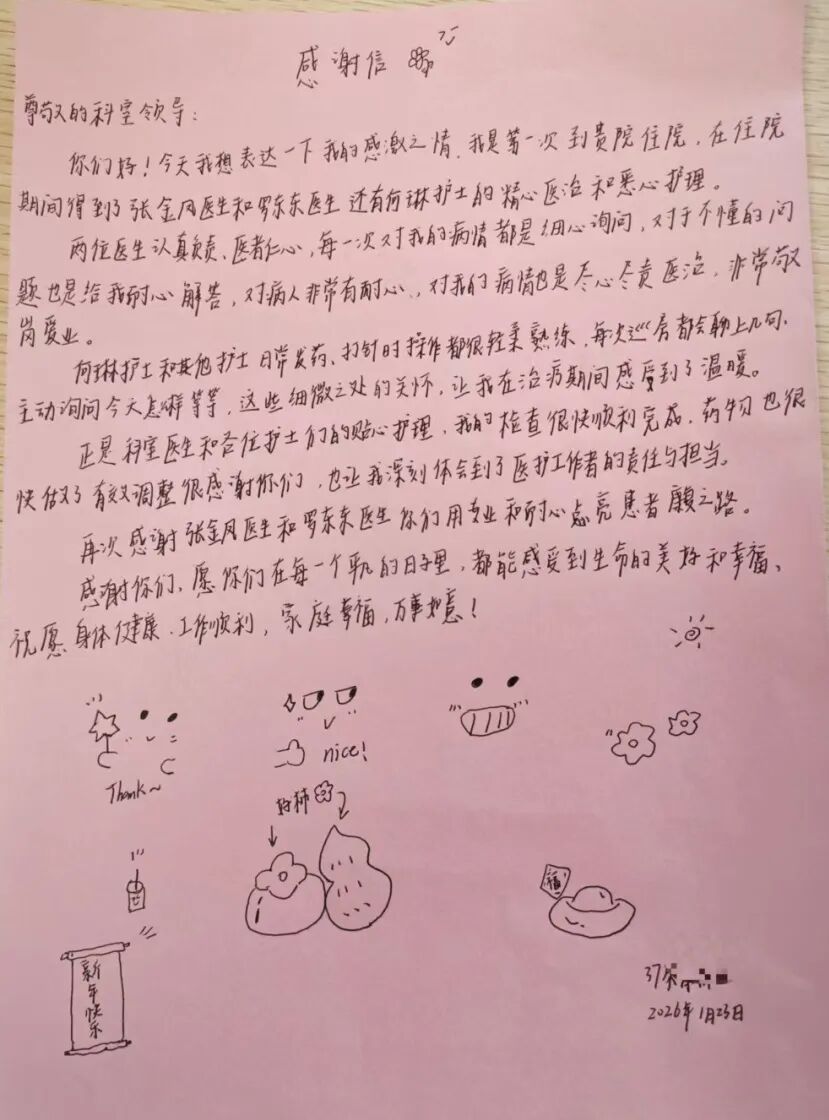 感谢信
尊敬的科室领导：
你们好！今天我想表达一下我的感激之情，我是第一次到贵院住院，在住院
期间得到了张金凤医生和罗东东医生还有何琳护士的精心医治和悉心护理。
两位医生认真负责、医者仁心，每一次对我的病情都是细心询问，对于不懂的问
题也是给我耐心解答，对病人非常有耐心、，对我的病情也是尽心尽责医治，非常敬
岗爱业。
何琳护士和其他护士日常发药、打针时操作都很轻柔熟练，每次巡房都会聊上几句、
主动询问今天怎样等等，这些细微之处的关怀，让我在治疗期间感受到了温暖。
正是科室医生和各位护士们的贴心护理，我的检查很快顺利完成，药物也很
快做了有效调整很感谢你们，也让我深刻体会到了医护工作者的责任与担当。
再次感谢张金凤医生和罗东东医生你们用专业和耐心点亮患者康复之路。
感谢你们、愿你们在每一个平凡的日子里，都能感受到生命的美好和幸福、
祝愿身体健康、工作顺利，家庭幸福，万事如意！
Thank~
nice!
好柿
福
新年快乐
37床
2026年1月23日